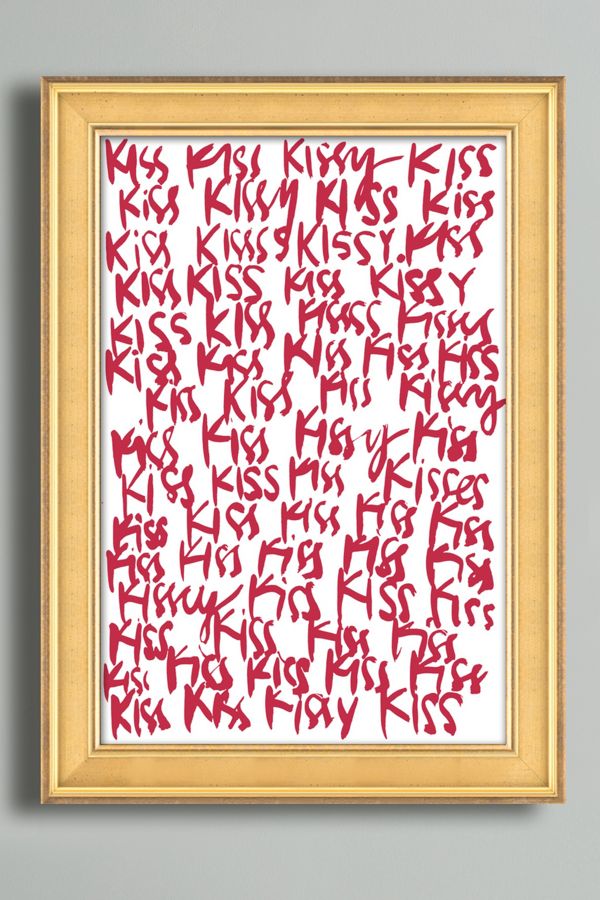 Kiss Kiss Kissy Kiss
Kiss Kissy Kiss Kiss
Kiss Kisss KISSY. Kiss
Kiss KISS Kiss KissY
KISS Kiss Kisss Kissy
Kiss Kiss Kiss Kiss Kiss
Kiss Kiss Kiss Kissy
Kiss Kiss Kissy Kiss
Kiss KISS Kiss Kisses
Kiss Kiss Kiss Kiss Kiss
Kiss Kiss Kiss Kiss Kiss
Kissy Kiss Kiss Kiss
Kiss Kiss Kiss Kiss
Kiss Kiss Kiss Kiss Kiss
Kiss Kiss Kissy KISS